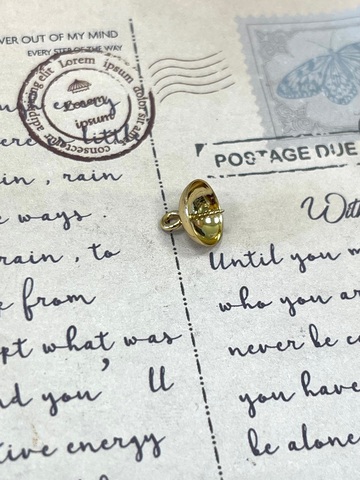 VER OUT OF MY MIND
EVERY STEP OF THE WAY
elit Lorem ipsum dolor sit
consectetur adipiscing
Lorem
ipsum
little
in , rain
POSTAGE DUE
Wit
e ways .
rain , to
Until you m
from
who you ar
pt what was
never be c
nd you ' ll
you have
tive energy
be alone